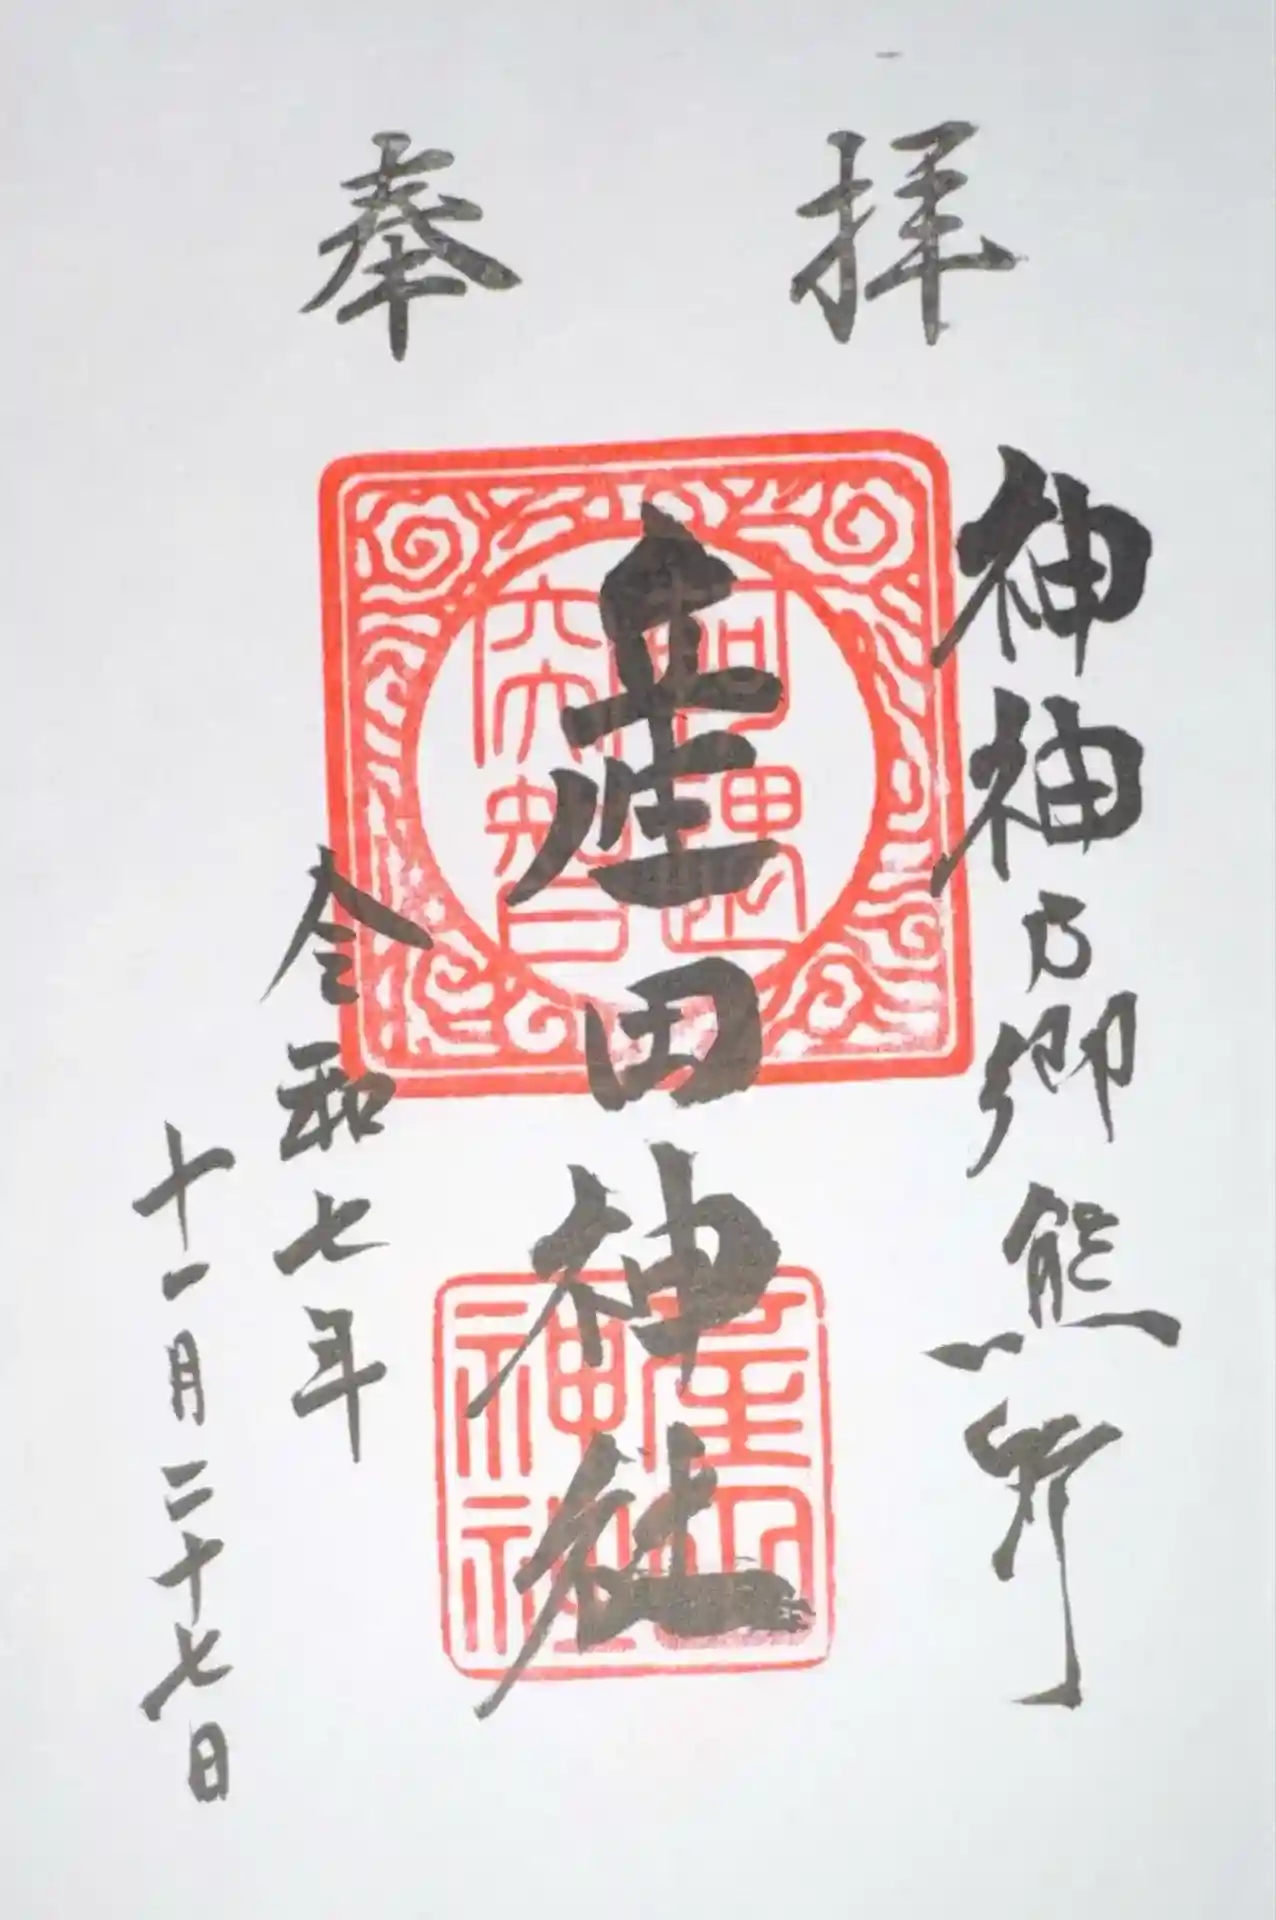 奉拝
神神乃郷熊野
産田神社
令和七年
十一月二十七日
軻遇
突智
産田
神社